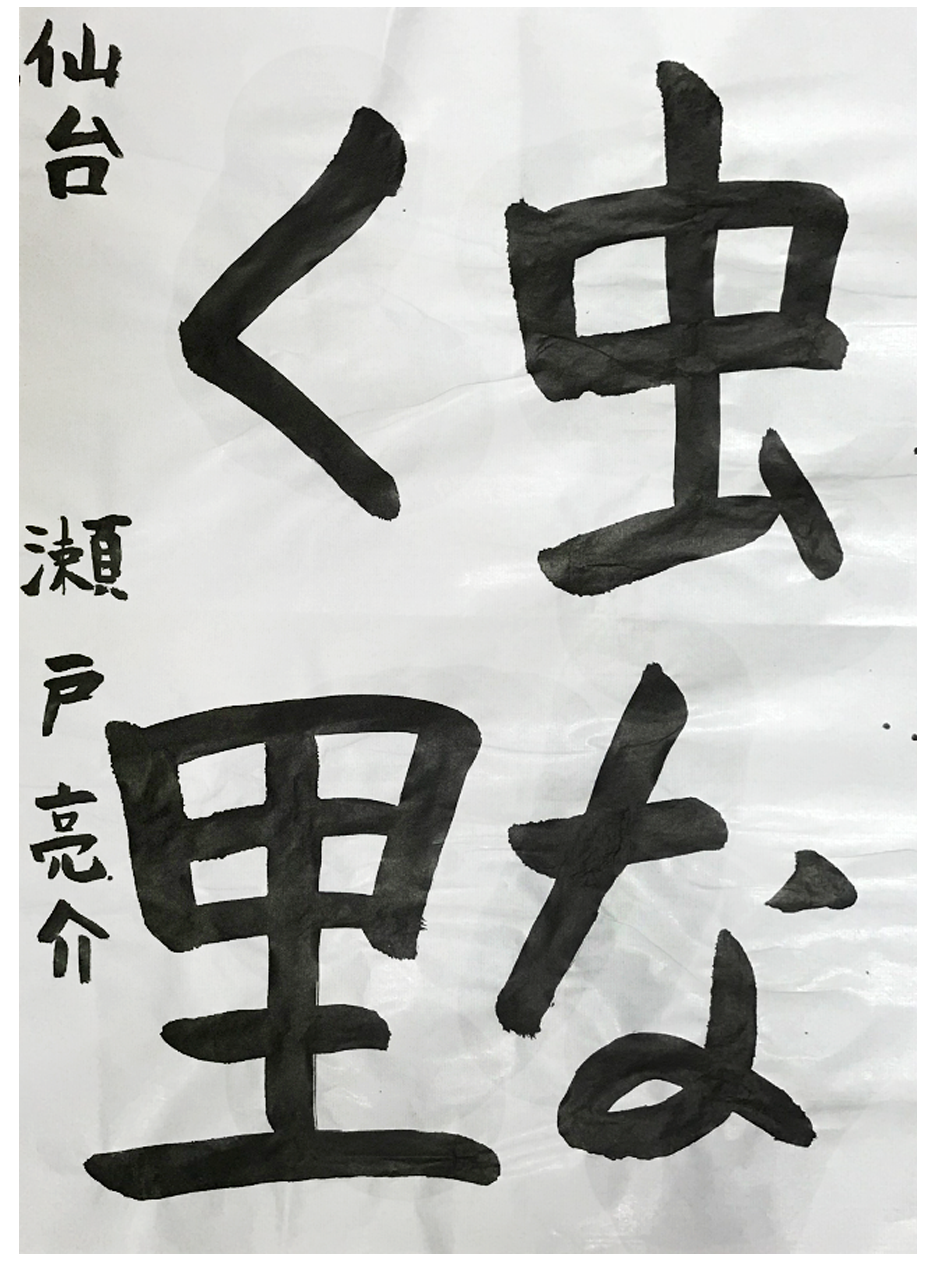 虫な
く里
仙台 瀬戸亮介